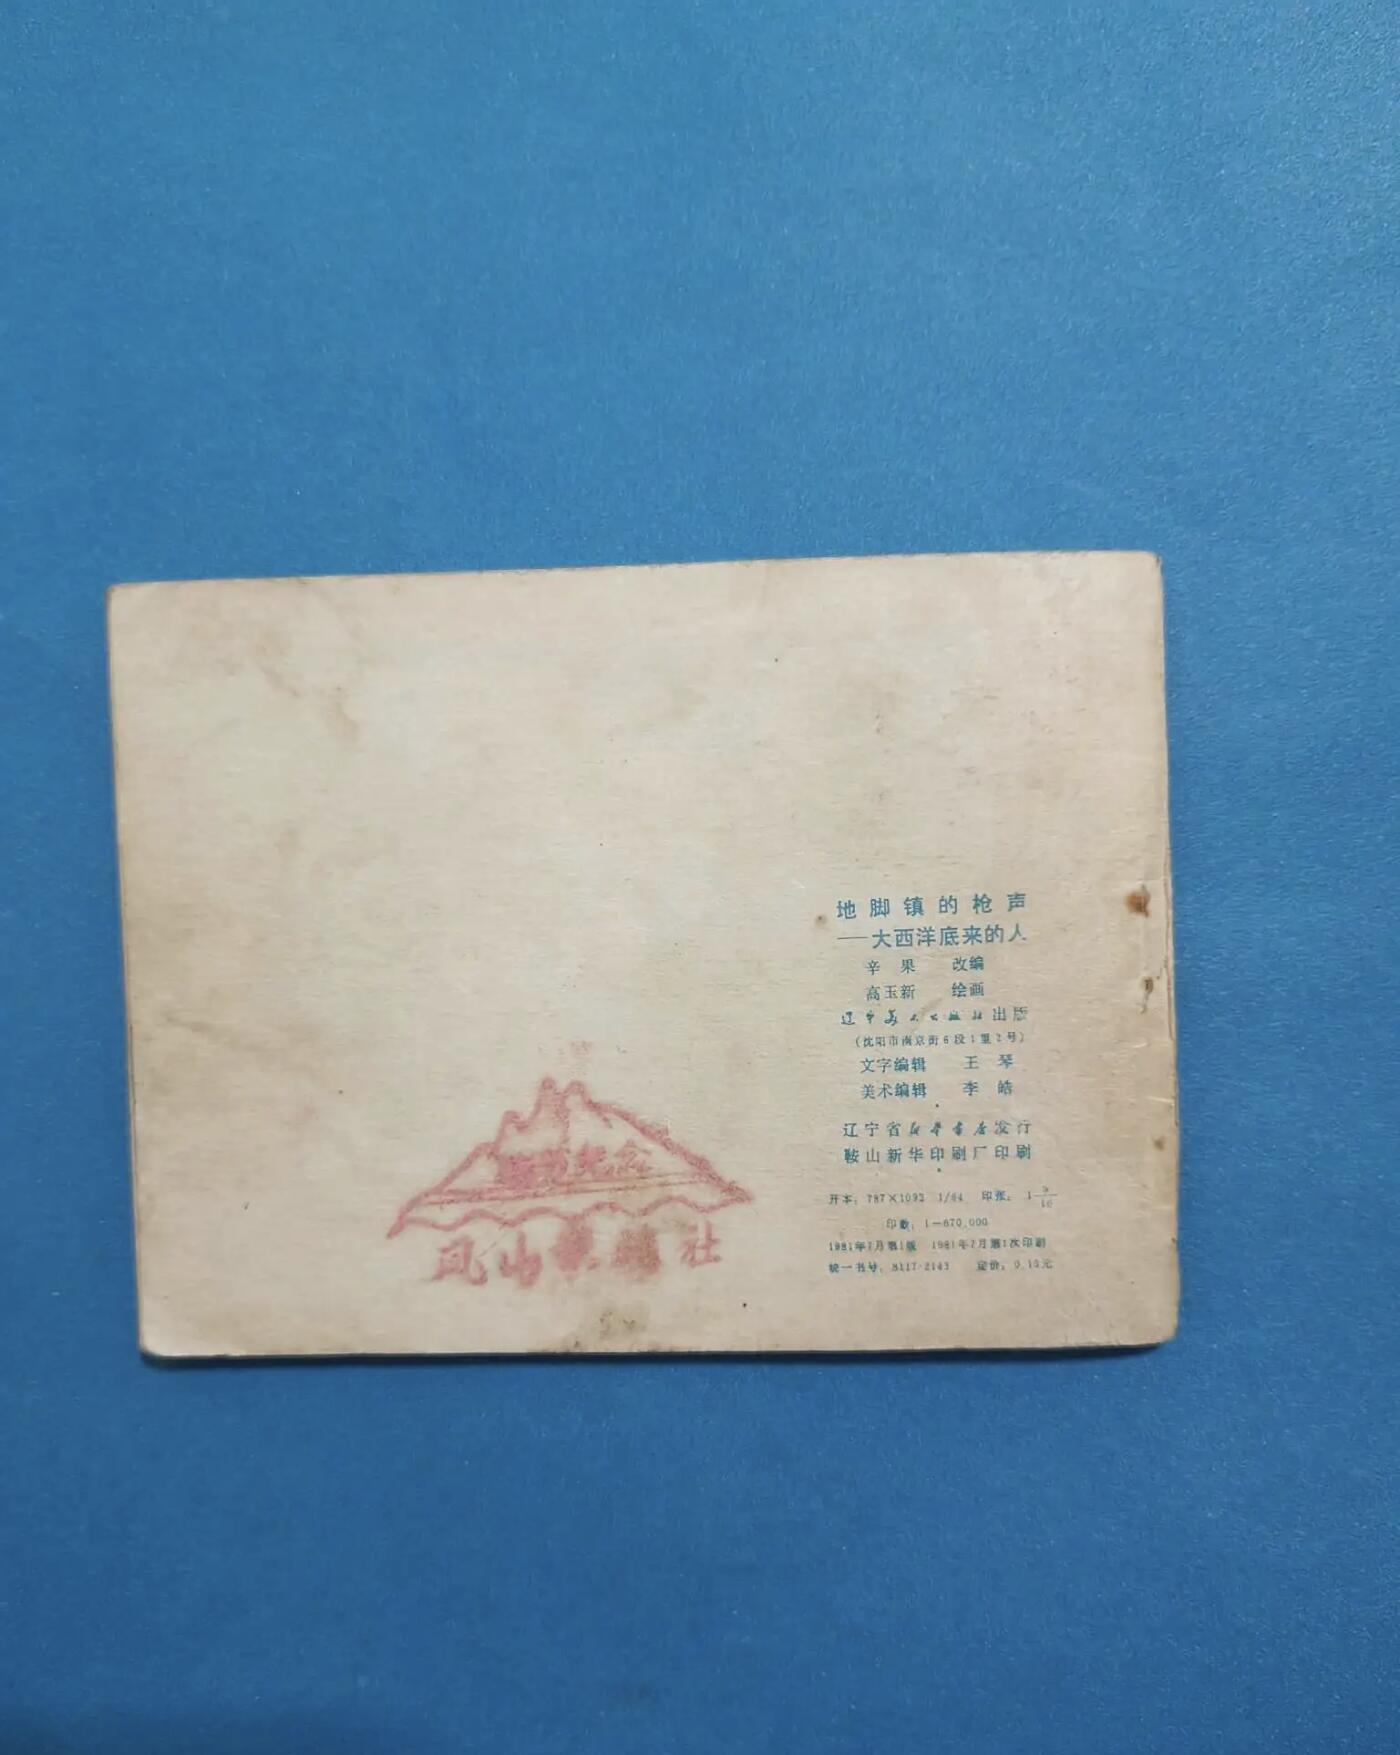 地脚镇的枪声
——大西洋底来的人
辛果 改编
高玉新 绘画
辽宁美术出版社出版
(沈阳市南京街6段1里2号)
文字编辑 王琴
美术编辑 李皓
辽宁省新华书店发行
鞍山新华印刷厂印刷
开本：787×1092 1/64 印张：1 9/16
印数：1—670,000
1981年7月第1版 1981年7月第1次印刷
统一书号：8117·2143 定价：0.13元
纪念
凤山 社